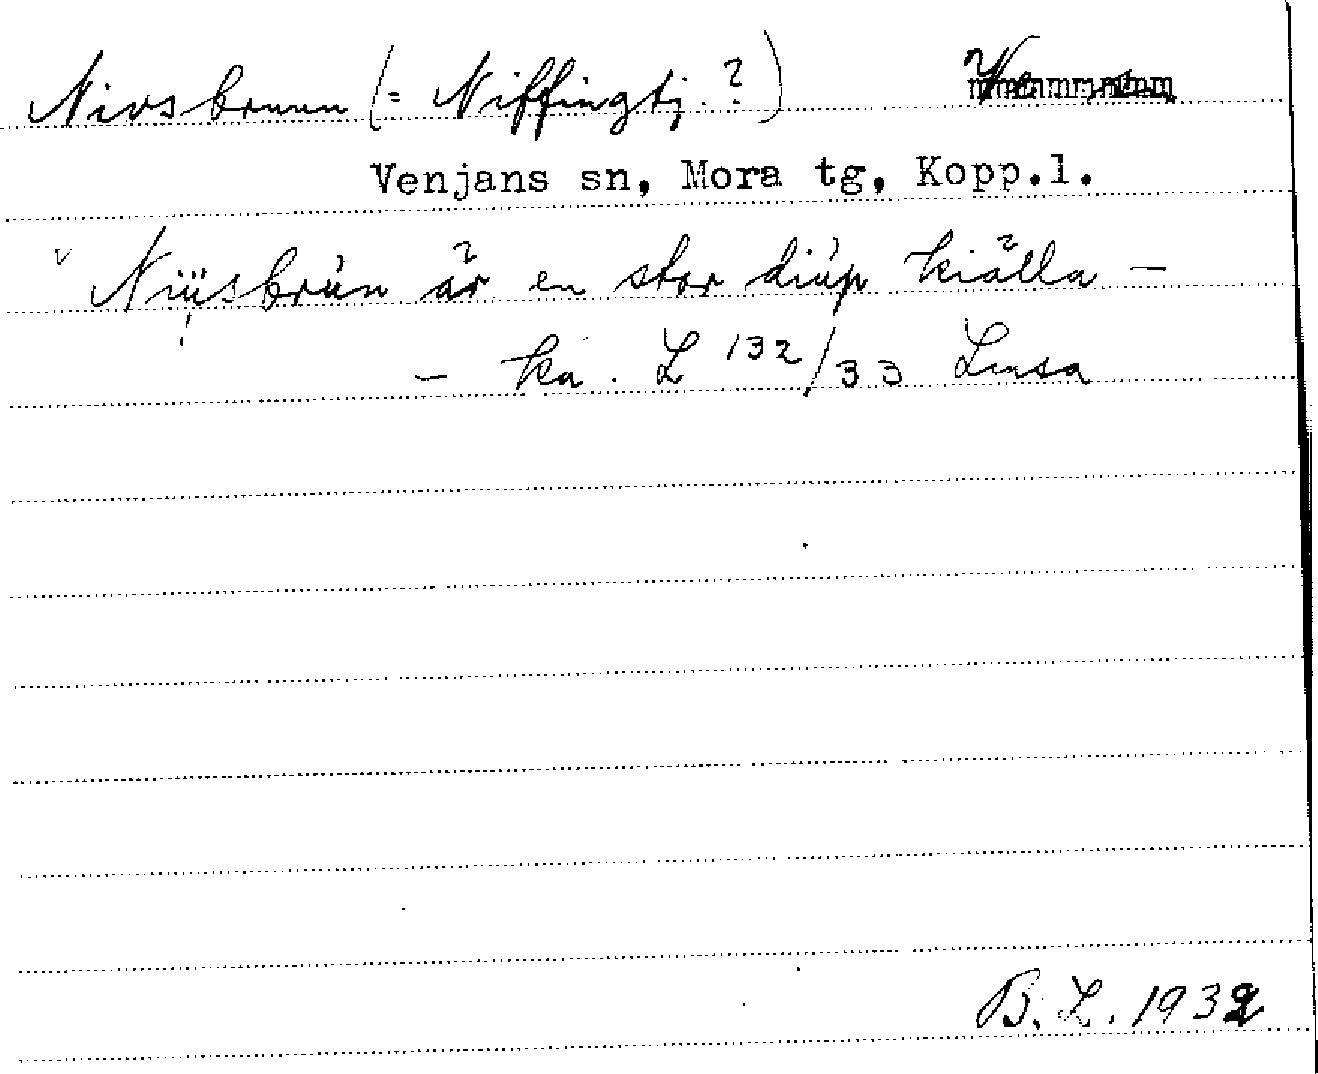 Nivsbrunn (= Niffingtj.?)
Venjans sn, Mora tg, Kopp.l.
Niüsbrùn är en stor diùp kiälla –
– ka. L 132/33 Lensa
B.L. 1932